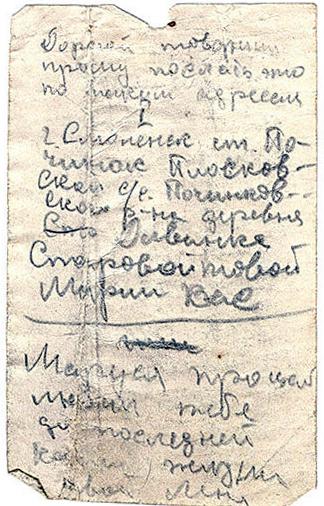 Дорогой товарищ
прошу послать это
по таким адресам
1
г. Смоленск ст. По-
чинок Плосков-
ской с/с. Починков-
ского р-на деревня
Старовойтовой
Марии Вас
Маруся прощай
тебя
до последней
капли жизни
твой Лёня